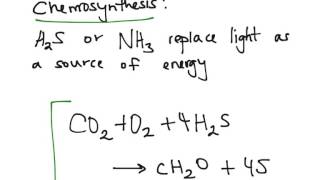 Chemosynthesis:
H₂S or NH₃ replace light as
a source of energy
CO₂ + O₂ + 4H₂S
⟶ CH₂O + 4S